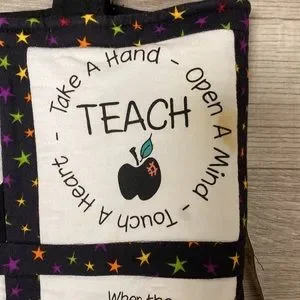 Take A Hand - Open A Mind - Touch A Heart -
TEACH
When the